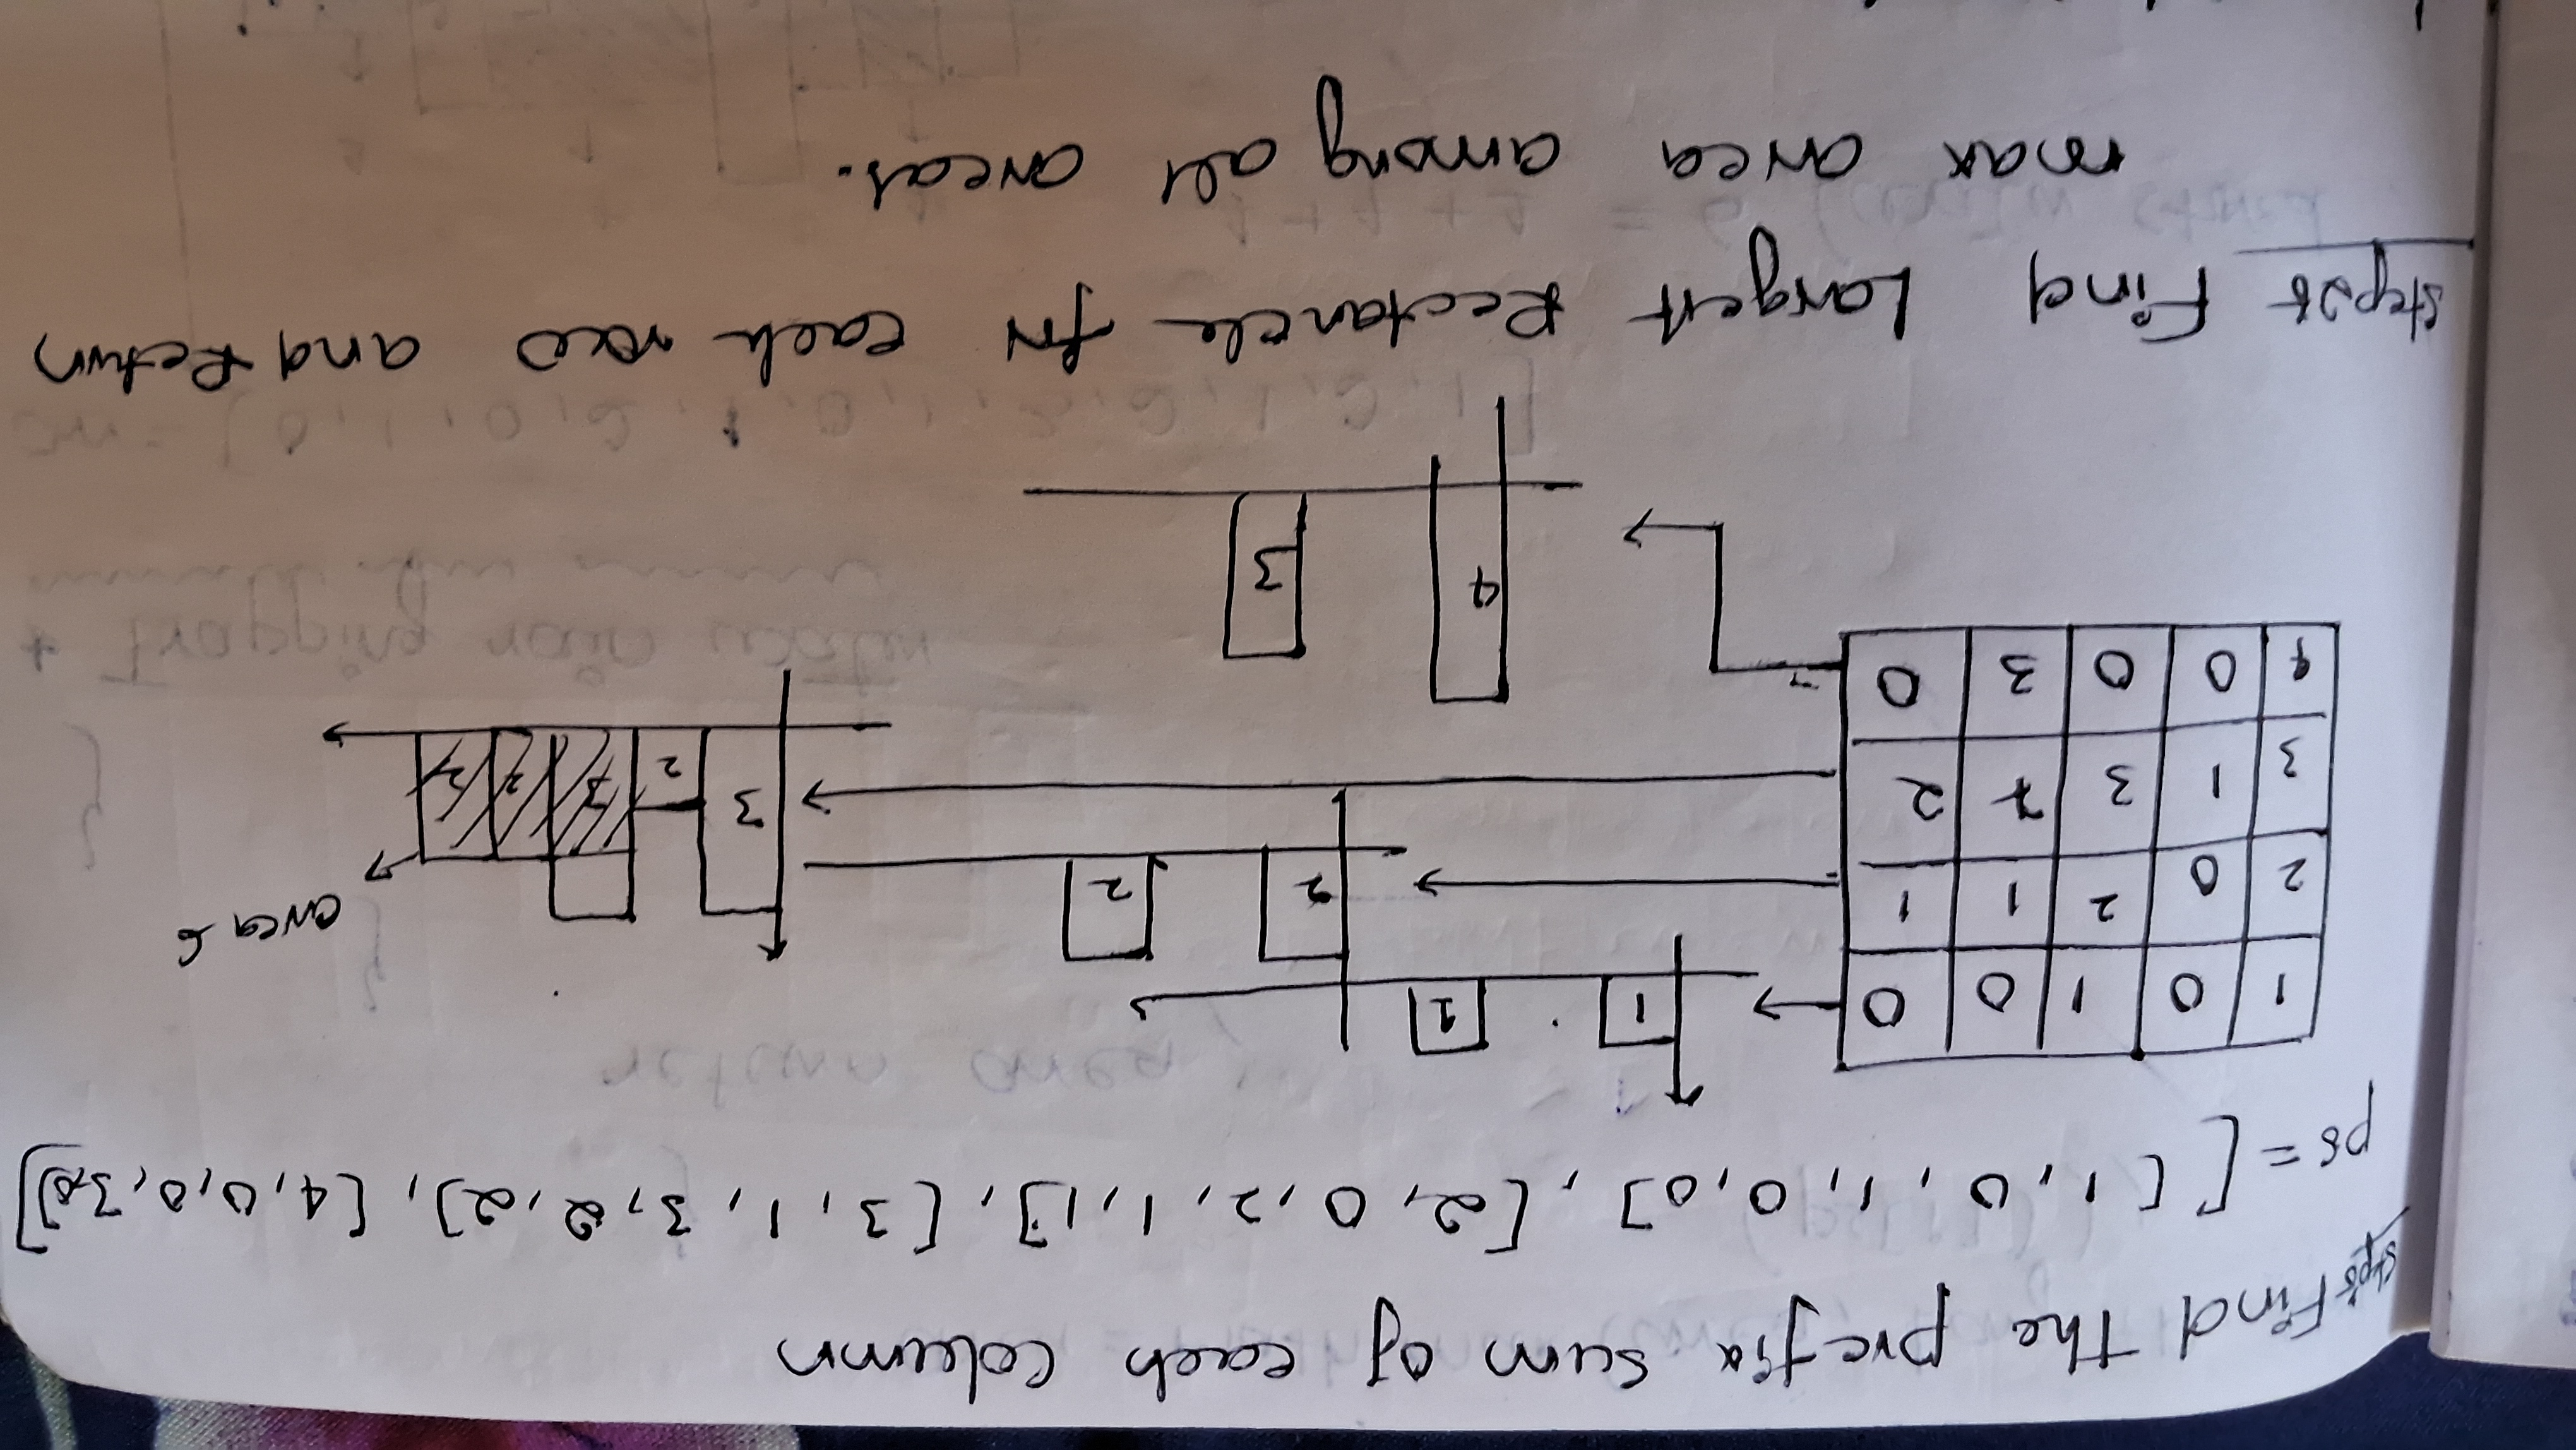 Step1 Find the prefix sum of each column
ps = [[1,0,1,0,0],[2,0,2,1,1],[3,1,3,2,2],[4,0,0,3,0]]
1 0 1 0 0
2 0 2 1 1
3 1 3 2 2
4 0 0 3 0
1 1
2 2
3 2 3 2 2
area 6
4 3
Step2 Find Largest Rectancle for each row and Return
max area among all areas.